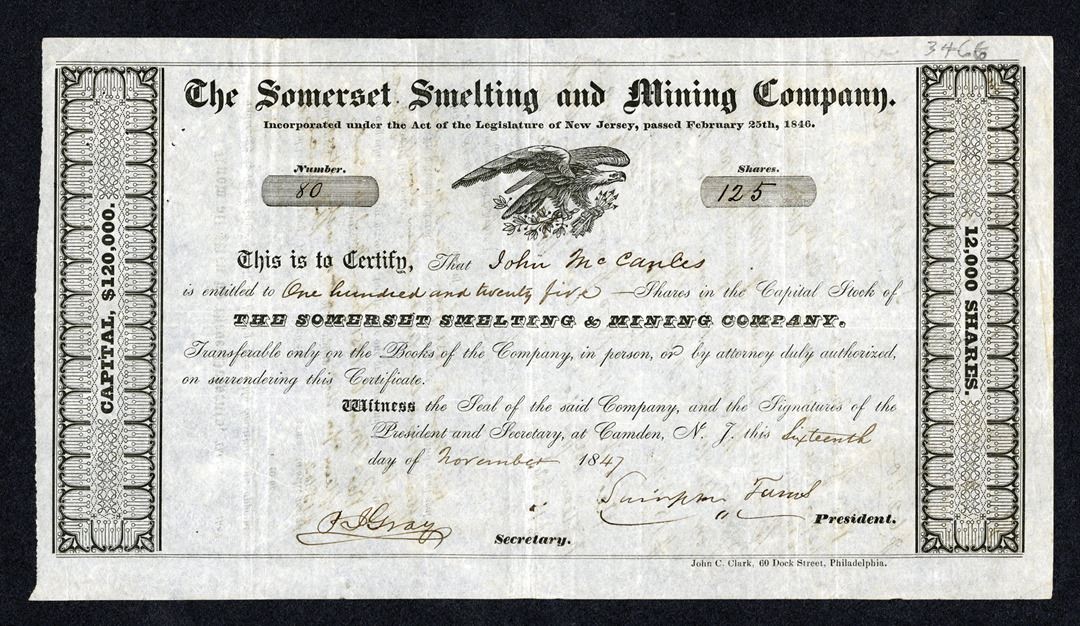 3466
The Somerset Smelting and Mining Company.
Incorporated under the Act of the Legislature of New Jersey, passed February 25th, 1846.
Number.
80
Shares.
125
This is to Certify, That John McCanles
is entitled to One hundred and twenty five Shares in the Capital Stock of
THE SOMERSET SMELTING & MINING COMPANY.
Transferable only on the Books of the Company, in person, or by attorney duly authorized,
on surrendering this Certificate.
Witness the Seal of the said Company, and the Signatures of the
President and Secretary, at Camden, N. J. this Sixteenth
day of November 1847
Gray
Secretary.
President.
CAPITAL, $120,000.
12,000 SHARES.
John C. Clark, 60 Dock Street, Philadelphia.